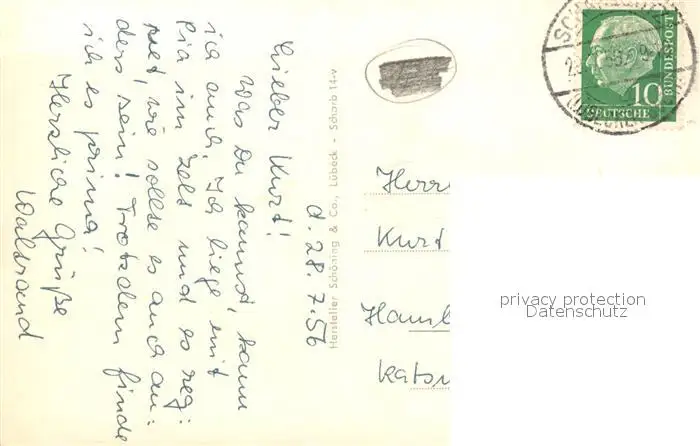 d. 28.7.56
Lieber Kurt!
Was Du kannst, kann
ich auch. Ich liege mit
Pia im Zelt und es reg:
net, wie sollte es auch an:
ders sein! Trotzdem finde
ich es prima!
Herzliche Grüße
Waltraud
Hersteller Schöning & Co., Lübeck - Scharb 14 v
BUNDESPOST
10
DEUTSCHE
Herr
Kurt
Hamb
privacy protection
Datenschutz